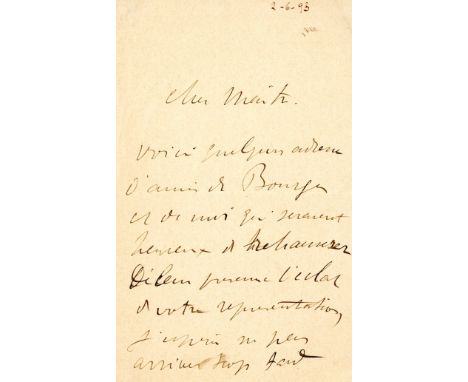 2-6-93
cher Maître.
Voici quelques adresses
d'amis de Bourges
et de moi qui seraient
heureux de rehausser
de leur présence l'éclat
de votre représentation,
j'espère ne pas
arriver trop tard